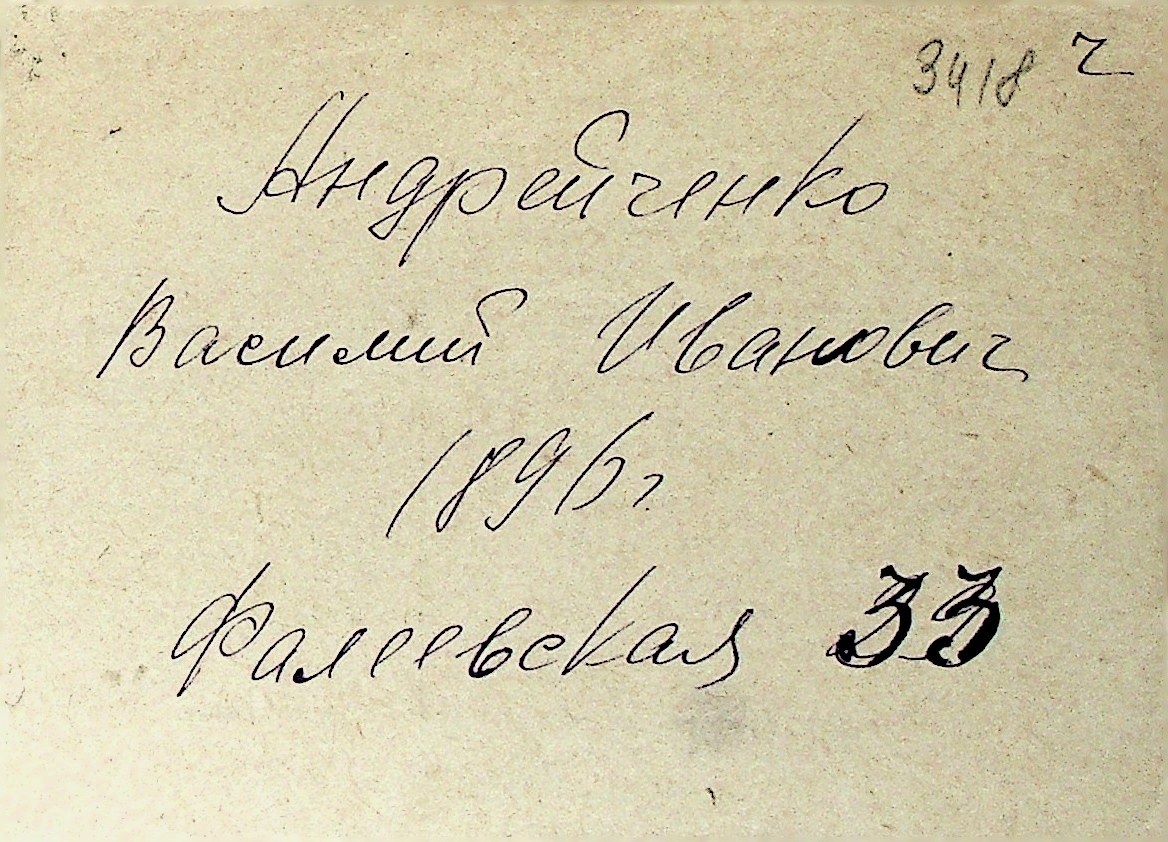 3418 ч
Андрейченко
Василий Иванович
1896 г
Фалеевская 33